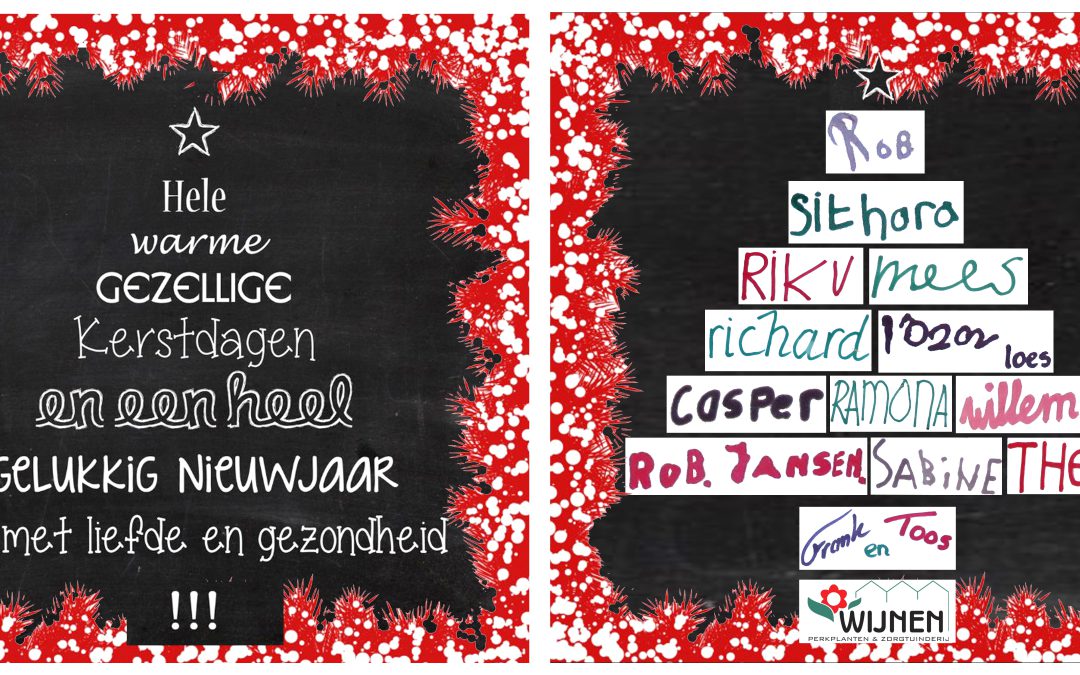 Hele
warme
GEZELLIGE
Kerstdagen
en een heel
GELUKKIG NIEUWJAAR
met liefde en gezondheid
!!!
Rob
Sithara
RIKU mees
richard loes
Casper RAMONA willem
ROB. JANSEN. SABiNE THE
Frank en Toos
WIJNEN
PERKPLANTEN & ZORGTUINDERIJ